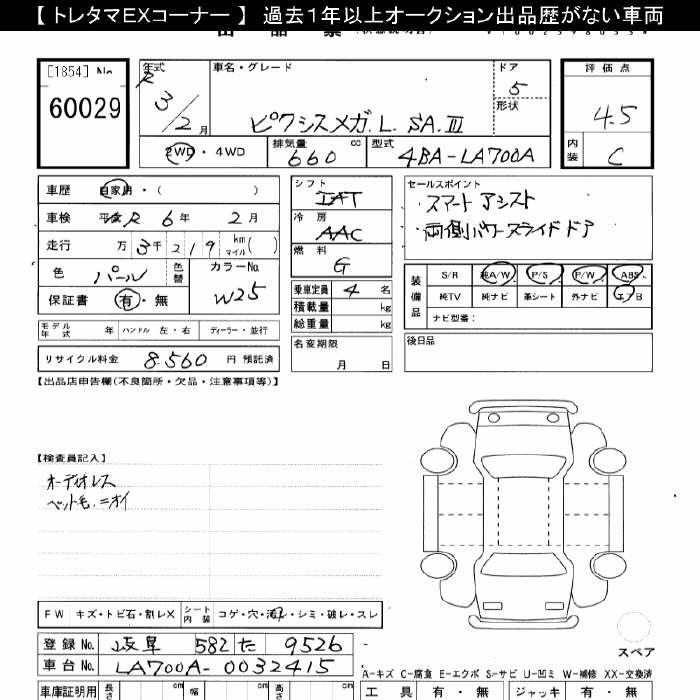 【 トレタマEXコーナー 】 過去1年以上オークション出品歴がない車両
[1854] No
60029
年式 R 3/2 月
車名・グレード
ピクシスメガ.L. SA.Ⅲ
ドア 5
形状
評価点
4.5
内装 C
2WD・4WD
排気量 660 cc
型式 4BA-LA700A
車歴 自家用・( )
車検 平成 R 6 年 2 月
走行 万 3 千 2 1 9 km マイル ( )
色 パール 色替
カラーNo. W25
保証書 有・無
モデル年式 年 ハンドル 左・右 ディーラー・並行
リサイクル料金 8,560 円 預託済
シフト IAT
冷房 AAC
燃料 G
乗車定員 4 名
積載量 kg
総重量 kg
名変期限
月 日
セールスポイント
スマート アシスト
両側パワースライド ドア
装備品
S/R 純A/W P/S P/W ABS
純TV 純ナビ 革シート 外ナビ エアB
ナビ型番:
後日品
【出品店申告欄(不良箇所・欠品・注意事項等)】
【検査員記入】
オーディオレス
ペット毛.ニオイ
FW キズ・トビ石・割レX シート内装 コゲ・穴・汚レ・シミ・破レ・スレ
登録 No. 岐阜 582 た 9526
車台 No. LA700A-0032415
スペア
A-キズ C-腐食 E-エクボ S-サビ U-凹ミ W-補修 XX-交換済
車庫証明用 長さ cm 幅 cm 高さ cm
工具 有・無 ジャッキ 有・無